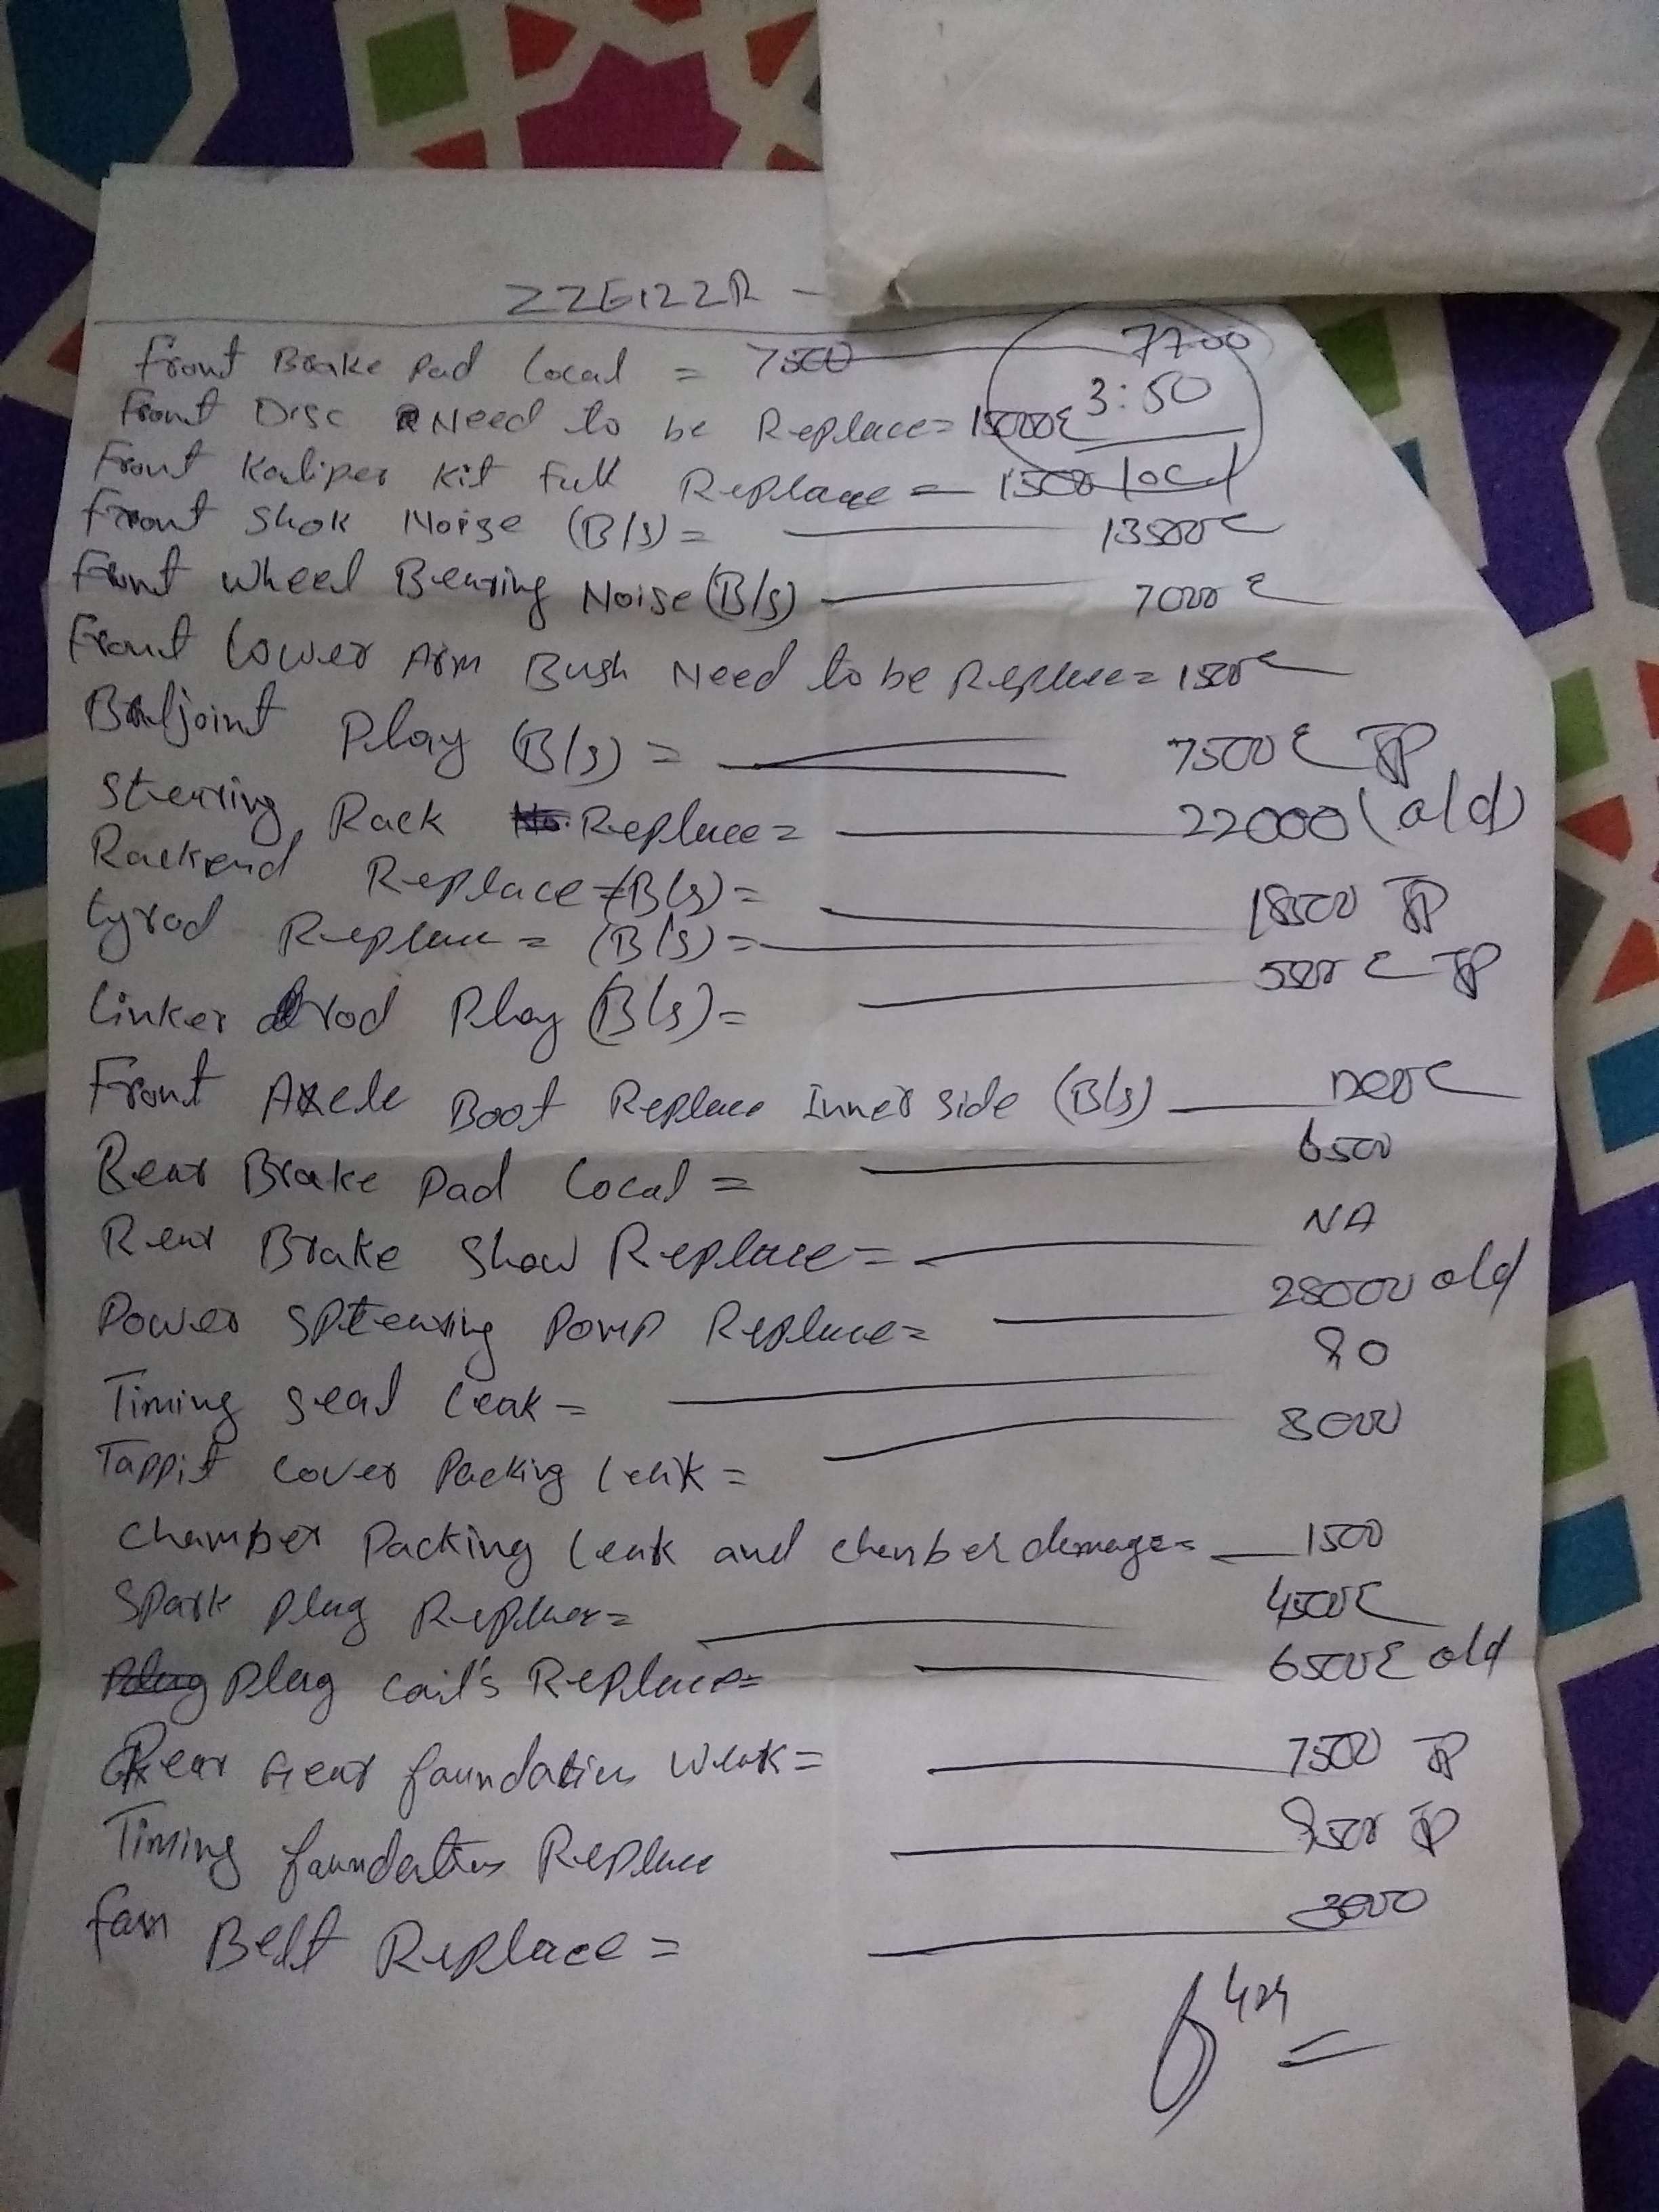 ZZE122R -
Front Brake Pad Local = 7500 7700
3:50
Front Disc Need to be Replace = 15000
Front Kaliper Kit Full Replace = 1500 local
Front Shok Noise (B/s) = 13500
Front Wheel Bearing Noise (B/s) 7000
Front Lower Arm Bush Need to be Replace = 1500
Balljoint Play (B/s) = 7500 JP
Stearing Rack Replace = 22000 (old)
Rackend Replace = (B/s) = JP
tyrod Replace = (B/s) = JP
Linker rod Play (B/s) =
Front Axele Boot Replace Inner side (B/s)
Rear Brake Pad Local = 6500
Rear Brake Show Replace = NA
Power Stearing Pomp Replace = 28000 old
Timing Seal Leak = 80
Tappit Cover Packing Leak = 3000
Chamber Packing Leak and chember demage = 1500
Spark Plug Replace = 4500
Plug Coil's Replace = 6500 old
Rear Gear foundation Weak = 7500 JP
Timing foundation Replace 8500 JP
fan Belt Replace = 3000